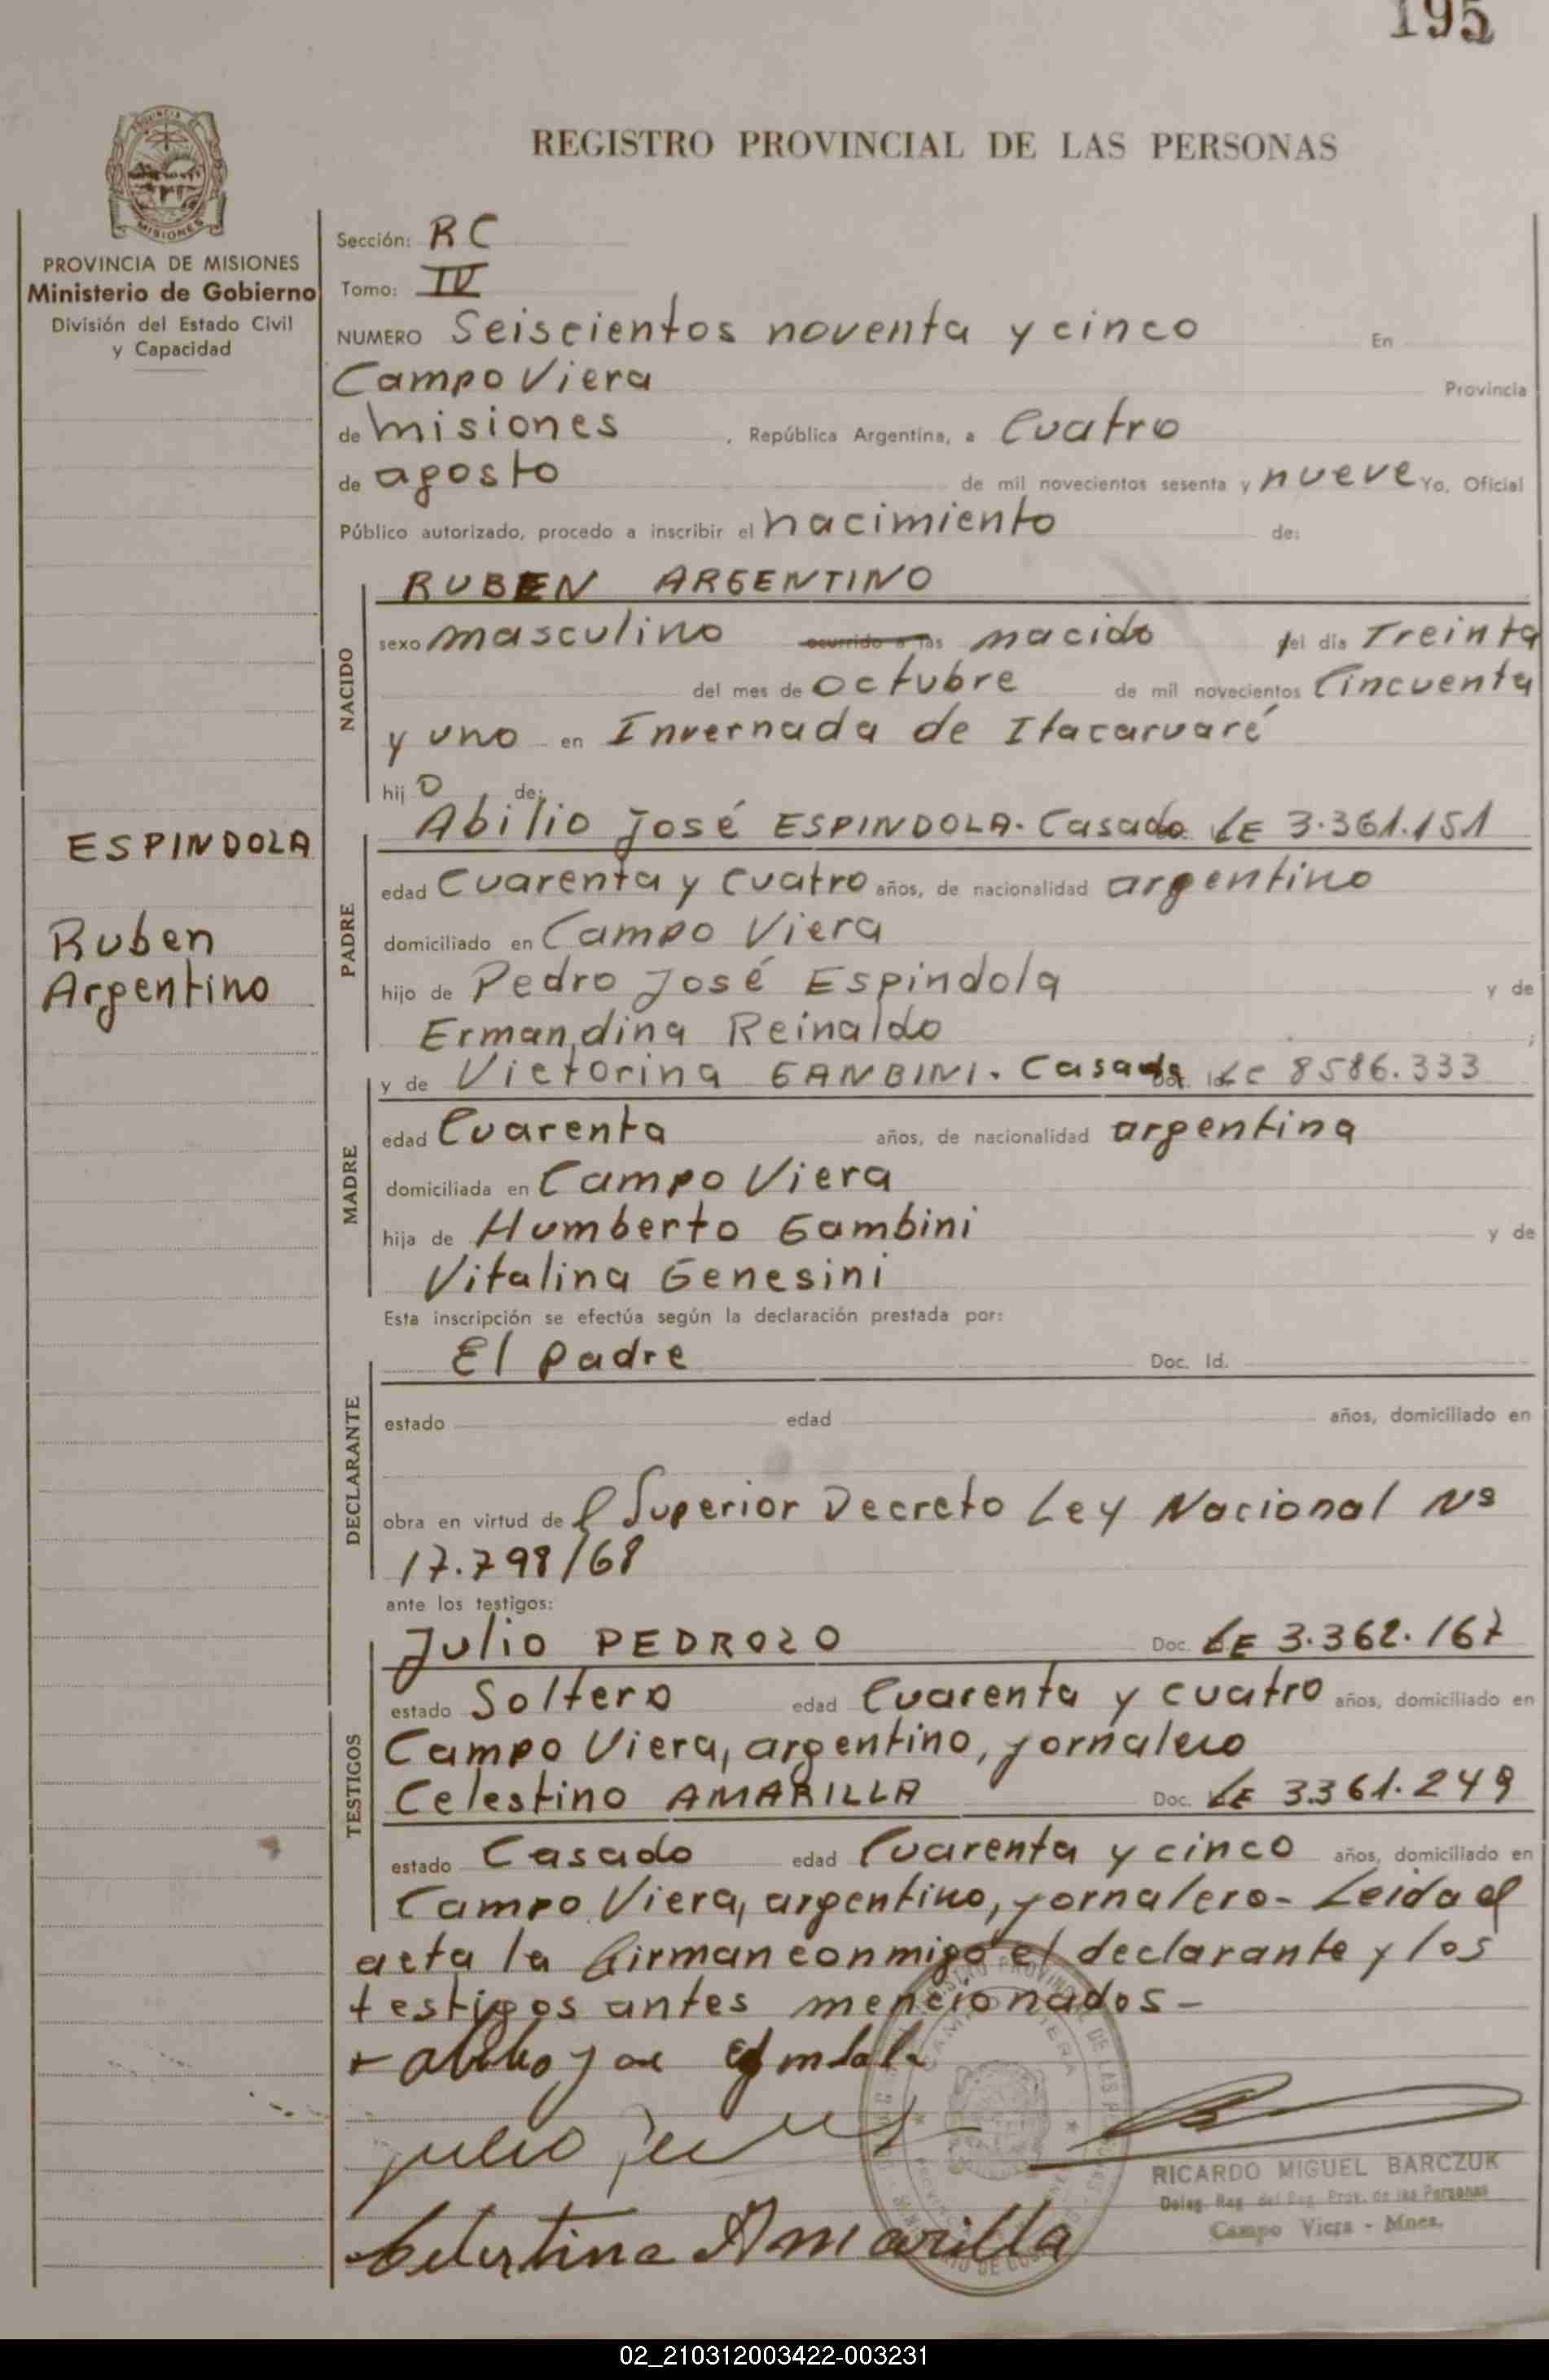 195
REGISTRO PROVINCIAL DE LAS PERSONAS
PROVINCIA DE MISIONES
Ministerio de Gobierno
División del Estado Civil
y Capacidad
Sección: RC
Tomo: IV
NUMERO Seiscientos noventa y cinco En
Campo Viera Provincia
de misiones , República Argentina, a Cuatro
de agosto de mil novecientos sesenta y nueve Yo, Oficial
Público autorizado, procedo a inscribir el nacimiento de:
NACIDO
RUBEN ARGENTINO
sexo masculino ocurrido a las nacido el día Treinta
del mes de octubre de mil novecientos Cincuenta
y uno en Invernada de Itacaruaré
hij o de:
ESPINDOLA
Ruben
Argentino
PADRE
Abilio José ESPINDOLA. Casado LE 3.361.151
edad Cuarenta y cuatro años, de nacionalidad argentino
domiciliado en Campo Viera
hijo de Pedro José Espindola y de
Ermandina Reinaldo ;
MADRE
y de Victorina GANBINI. Casada LC 8586.333
edad Cuarenta años, de nacionalidad argentina
domiciliada en Campo Viera
hija de Humberto Gambini y de
Vitalina Genesini
Esta inscripción se efectúa según la declaración prestada por:
DECLARANTE
El padre Doc. Id.
estado edad años, domiciliado en
obra en virtud de l Superior Decreto Ley Nacional Nº
17.798/68
ante los testigos:
TESTIGOS
Julio PEDROZO Doc. LE 3.362.167
estado Soltero edad Cuarenta y cuatro años, domiciliado en
Campo Viera, argentino, jornalero
Celestino AMARILLA Doc. LE 3.361.249
estado Casado edad Cuarenta y cinco años, domiciliado en
Campo Viera, argentino, jornalero- Leida el
acta la firman conmigo el declarante y los
testigos antes mencionados-
Julio
Celestino Amarilla
RICARDO MIGUEL BARCZUK
Deleg. Reg. del Reg. Prov. de las Personas
Campo Viera - Mnes.
02_210312003422-003231